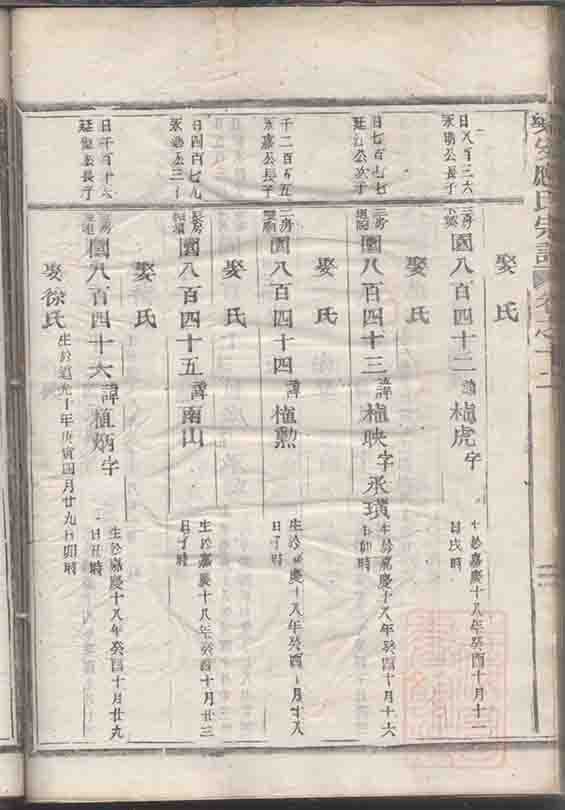 應氏宗譜
日八百三六
永瑞公長子
三房
國八百四十二 諱植虎字
生於嘉慶十八年癸酉十月十一
日戌時
娶氏
日七百七七
廷江公次子
三房
國八百四十三 諱植映字承璜
生於嘉慶十八年癸酉十月十六
日卯時
娶氏
千二百五五
永嘉公長子
二房
國八百四十四 諱植勲
生於嘉慶十八年癸酉十月廿八
日子時
娶氏
日四百七九
長房
國八百四十五 諱南山
生於嘉慶十八年癸酉十月廿三
日子時
娶氏
日千百十六
公長子
三房
國八百四十六 諱植炳字
生於嘉慶十八年癸酉十月廿九
日丑時
娶徐氏 生於道光十年庚寅四月廿九日卯時